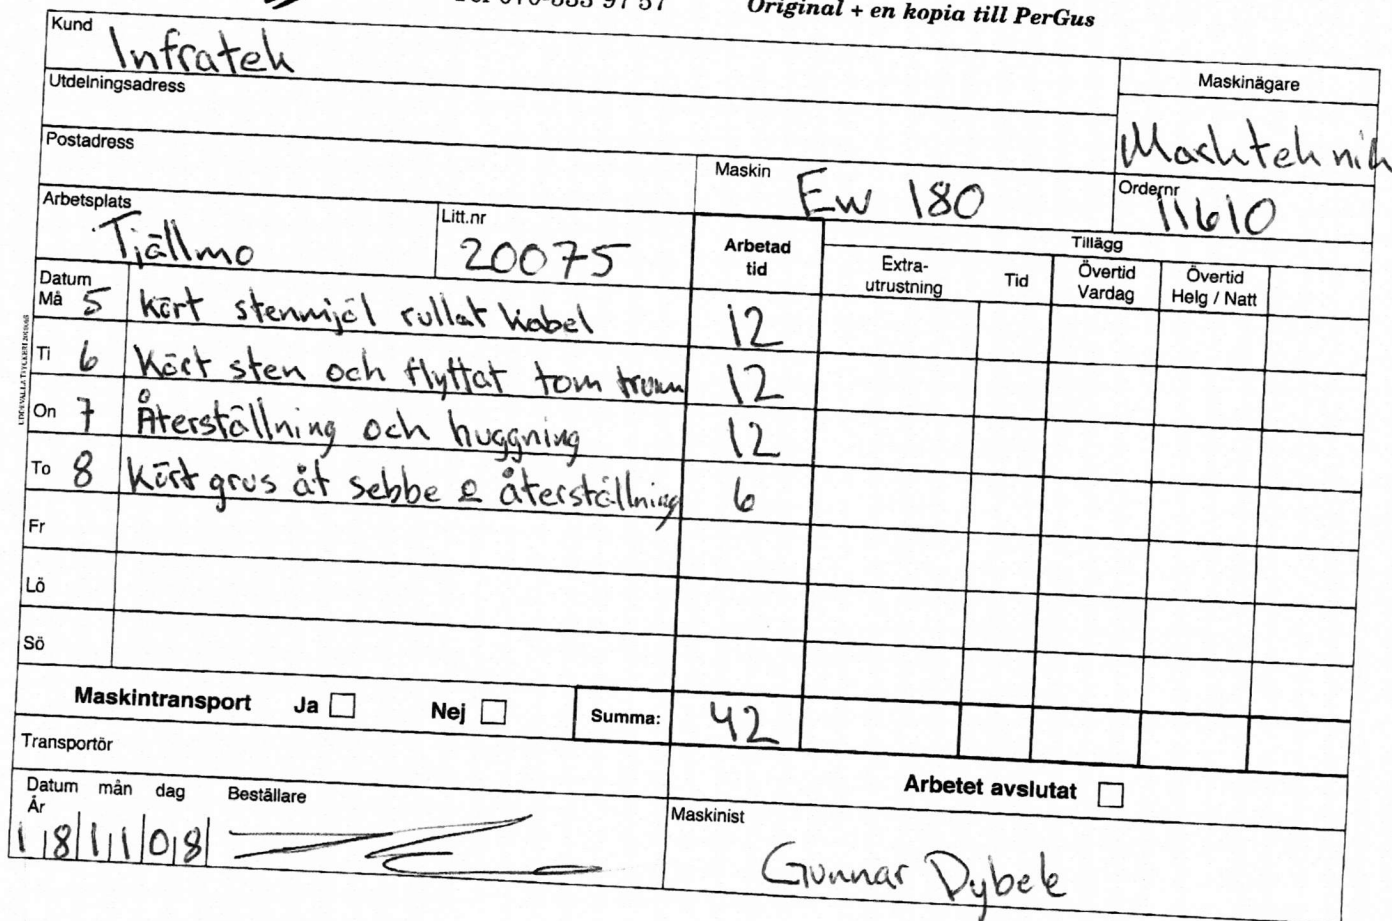 Original + en kopia till PerGus
Kund Infratek
Maskinägare
Utdelningsadress
Mackteknik
Postadress
Maskin Ew 180
Ordernr 11610
Arbetsplats Tjällmo
Litt.nr 20075
Arbetad tid
Tillägg
Extra-utrustning
Tid
Övertid Vardag
Övertid Helg / Natt
Datum
Må 5 Kört stenmjöl rullat kabel 12
Ti 6 Kört sten och flyttat tom trum 12
On 7 Återställning och huggning 12
To 8 Kört grus åt sebbe & återställning 6
Fr
Lö
Sö
Maskintransport Ja Nej Summa: 42
Transportör
Arbetet avslutat
Datum mån dag
År
181108
Beställare
Maskinist
Gunnar Dybek